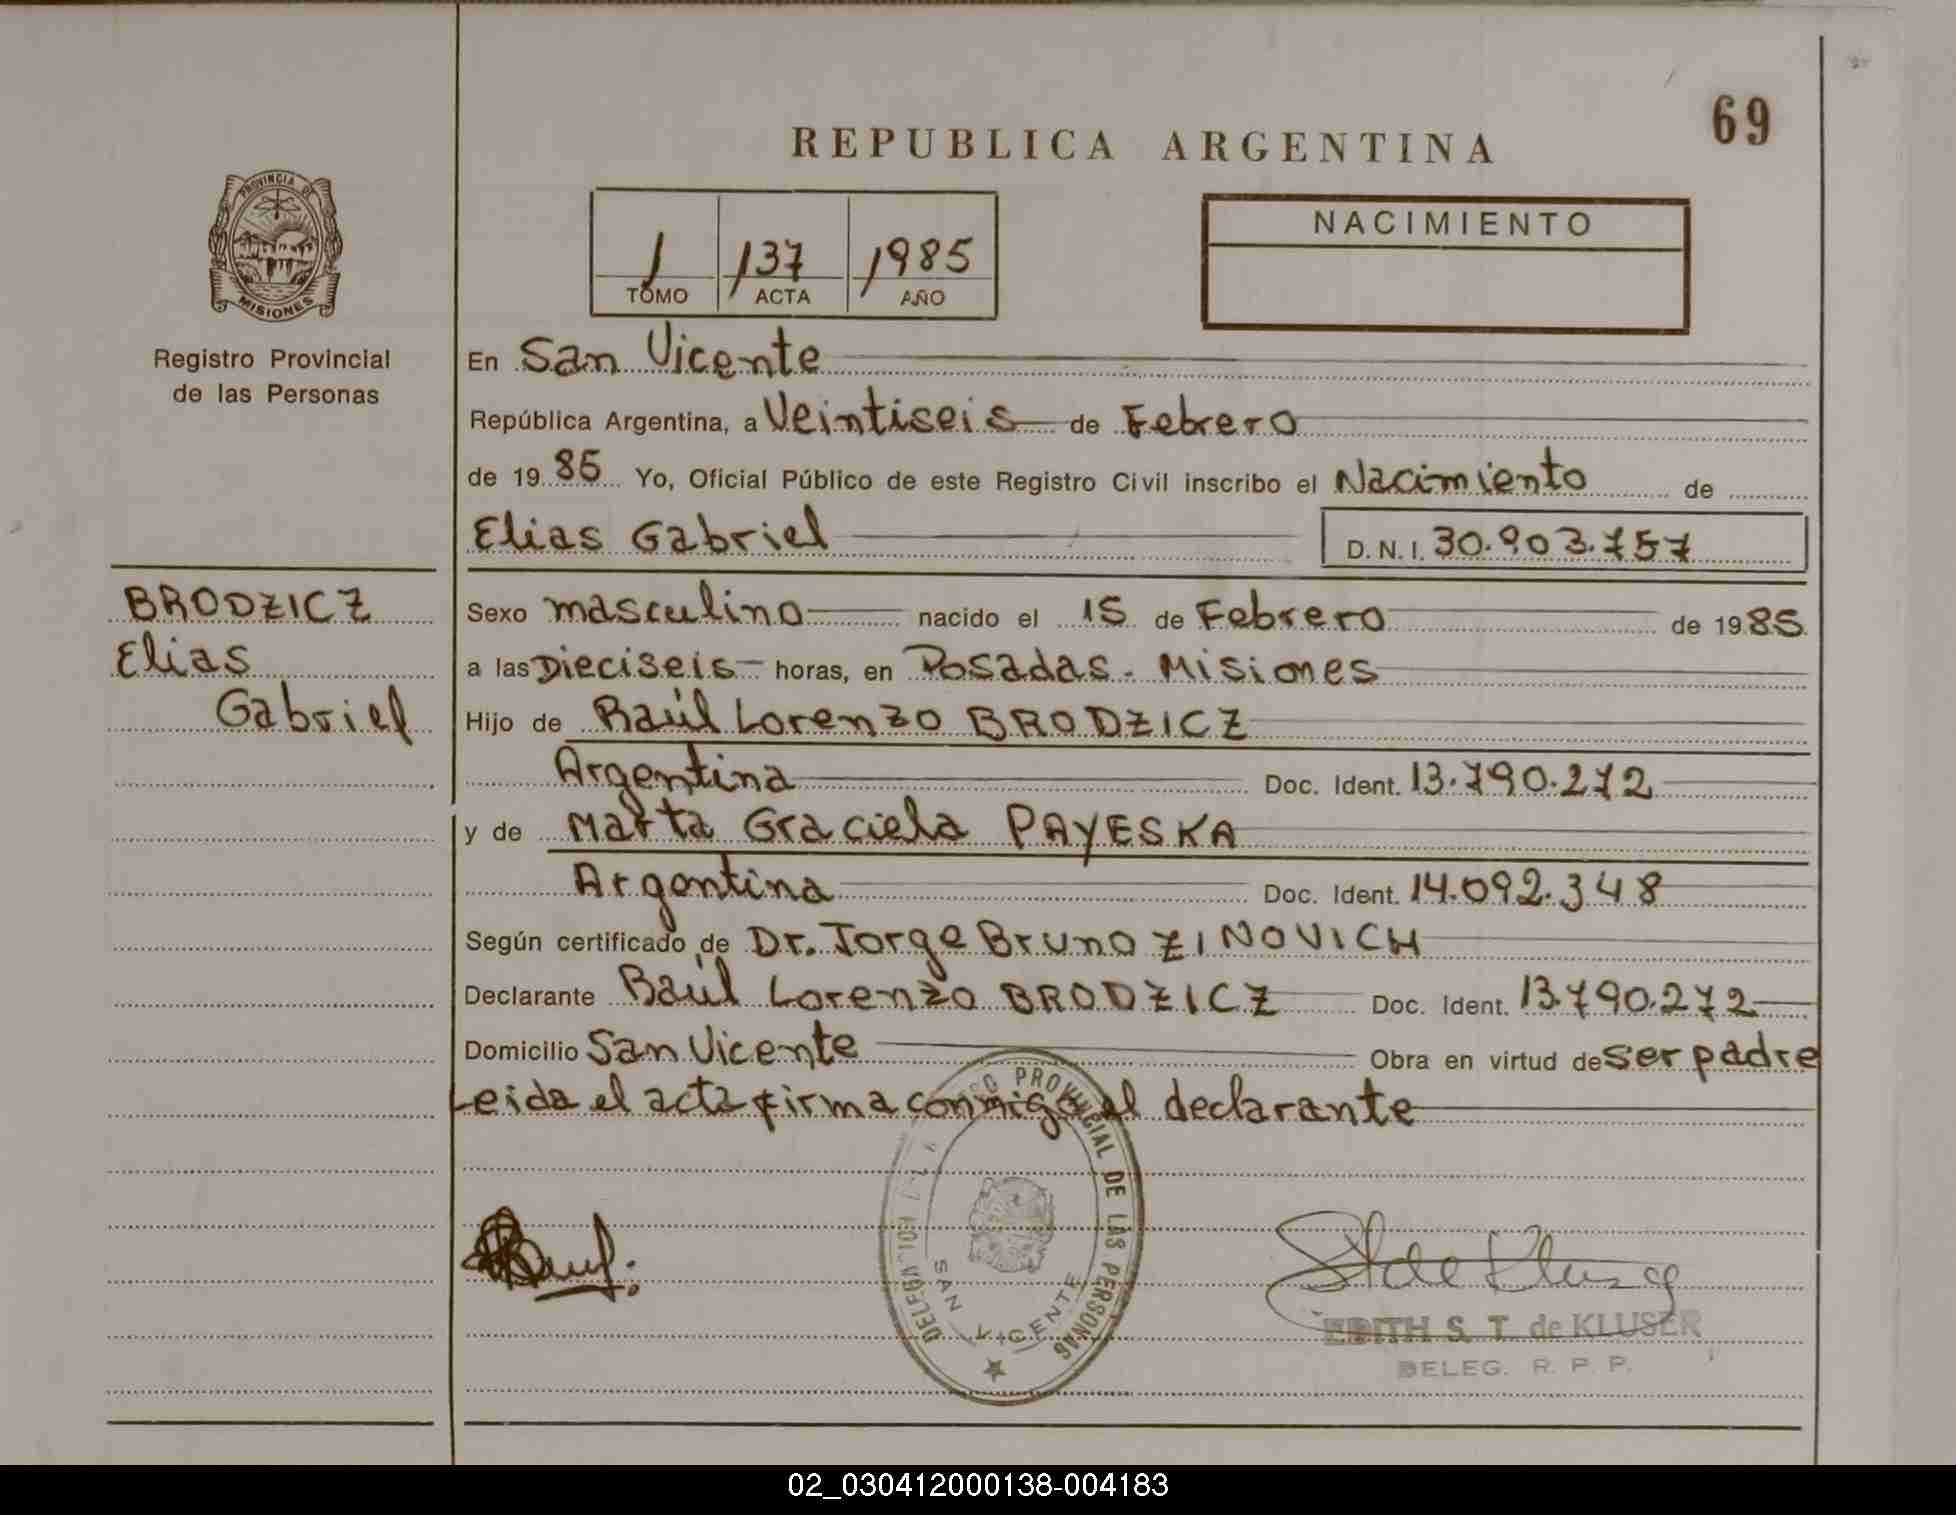 69
REPUBLICA ARGENTINA
PROVINCIA DE
MISIONES
Registro Provincial
de las Personas
1 137 1985
TOMO ACTA AÑO
NACIMIENTO
En San Vicente
República Argentina, a Veintiseis de Febrero
de 1985 Yo, Oficial Público de este Registro Civil inscribo el Nacimiento de
Elias Gabriel D.N.I. 30.903.757
BRODZICZ
Elias
Gabriel
Sexo masculino nacido el 15 de Febrero de 1985
a las Dieciseis horas, en Posadas - Misiones
Hijo de Raúl Lorenzo BRODZICZ
Argentina Doc. Ident. 13.790.272
y de Marta Graciela PAYESKA
Argentina Doc. Ident. 14.092.348
Según certificado de Dr. Jorge Bruno ZINOVICH
Declarante Raúl Lorenzo BRODZICZ Doc. Ident. 13.790.272
Domicilio San Vicente Obra en virtud de ser padre
Leida el acta firma conmigo el declarante
PROVINCIAL DE LAS PERSONAS
SAN VICENTE
EDITH S. T. de KLUSER
DELEG. R. P. P.
02_030412000138-004183